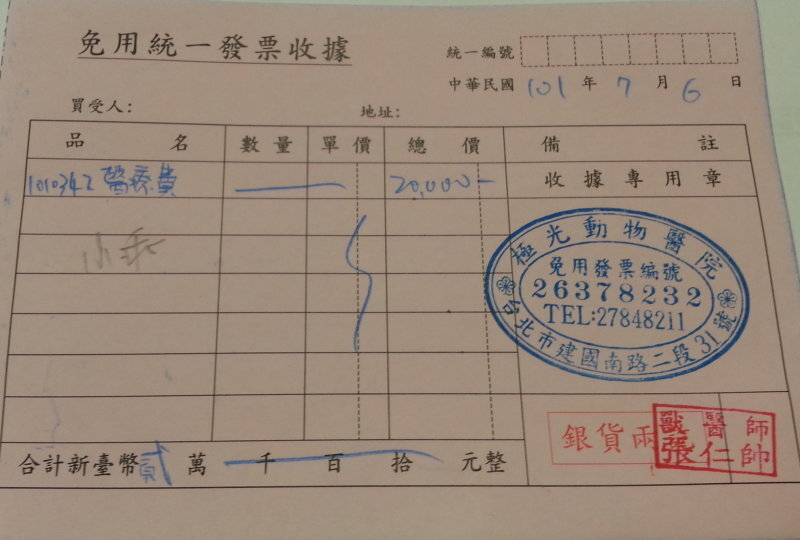 免用統一發票收據
統一編號
中華民國 101 年 7 月 6 日
買受人: 地址:
品名 數量 單價 總價 備註
1010342 醫療費 20,000- 收據專用章
極光動物醫院
免用發票編號
26378232
TEL:27848211
台北市建國南路二段31號
銀貨兩
獸醫師
張仁帥
合計新臺幣貳萬千百拾元整